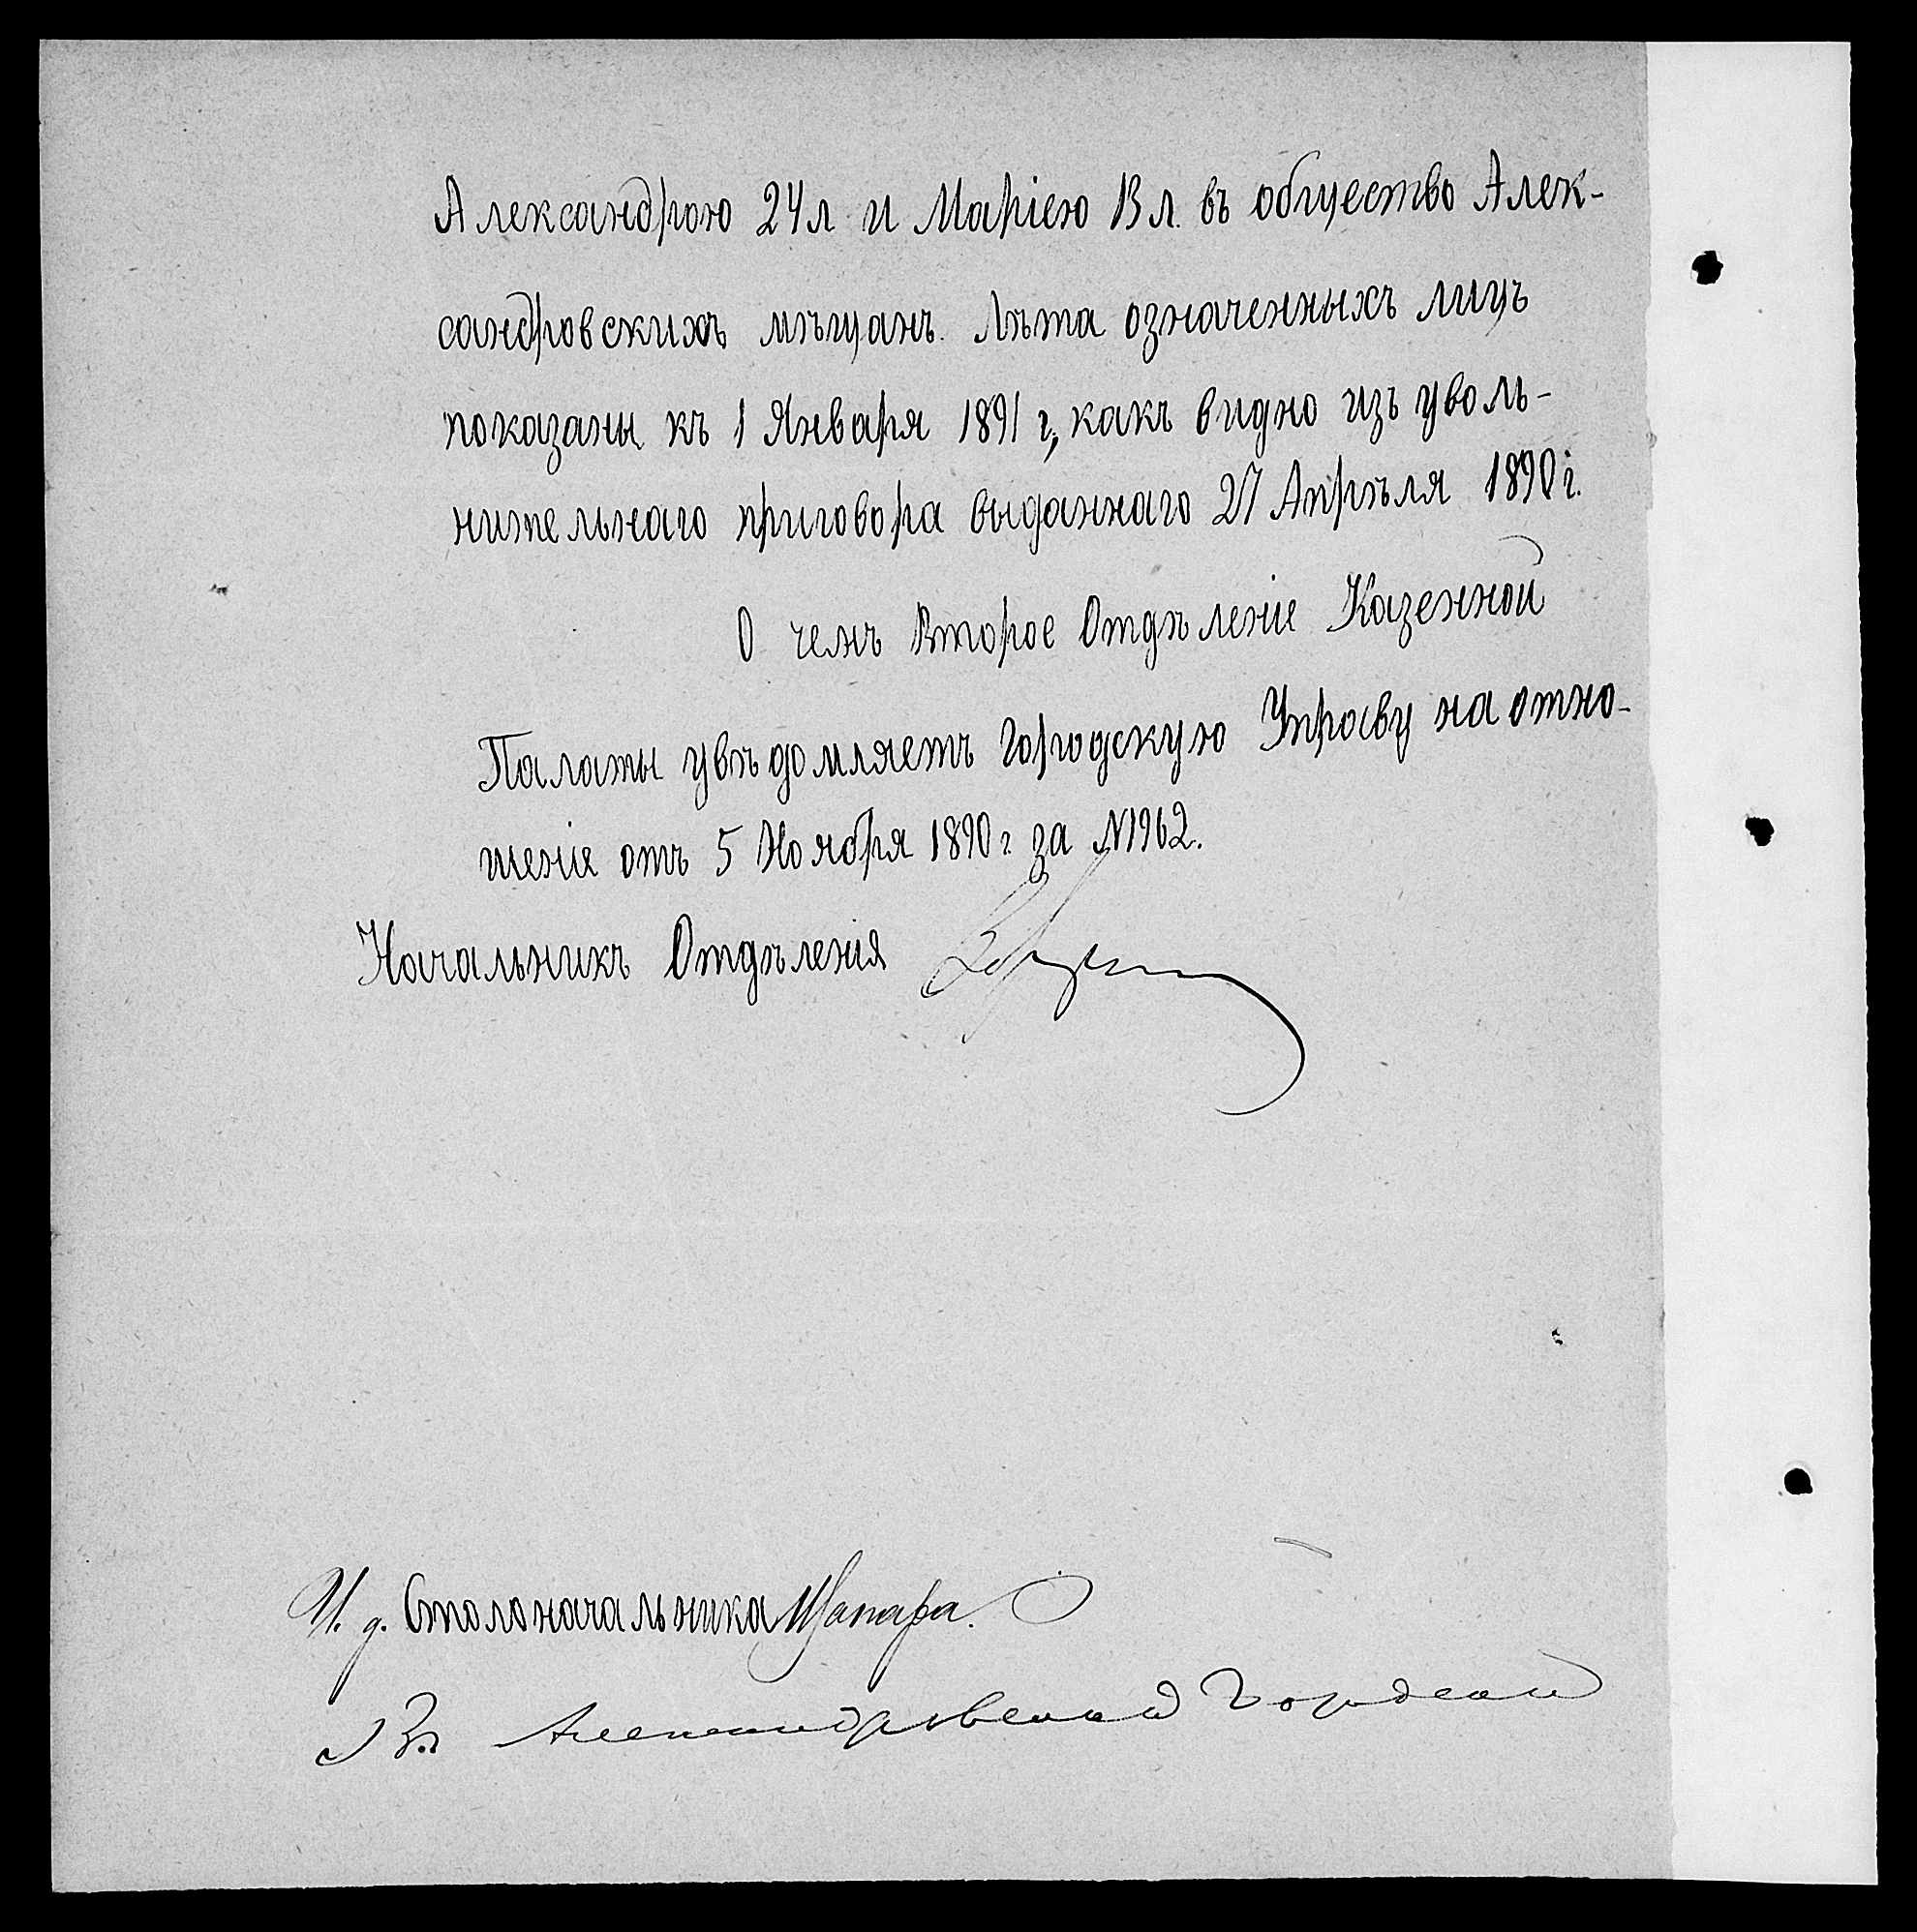 Александрою 24 л. и Маріею 13 л. въ общество Алек-
сандровскихъ мѣщанъ. Лѣта означенныхъ лицъ
показаны къ 1 Января 1891 г., какъ видно изъ уволь-
нительнаго приговора выданнаго 27 Апрѣля 1890 г.
О чемъ Второе Отдѣленіе Казенной
Палаты увѣдомляетъ Городскую Управу на отно-
шеніе отъ 5 Ноября 1890 г. за №1962.
Начальникъ Отдѣленія
И. д. Столоначальника Шапара.
Въ Александровской Городской